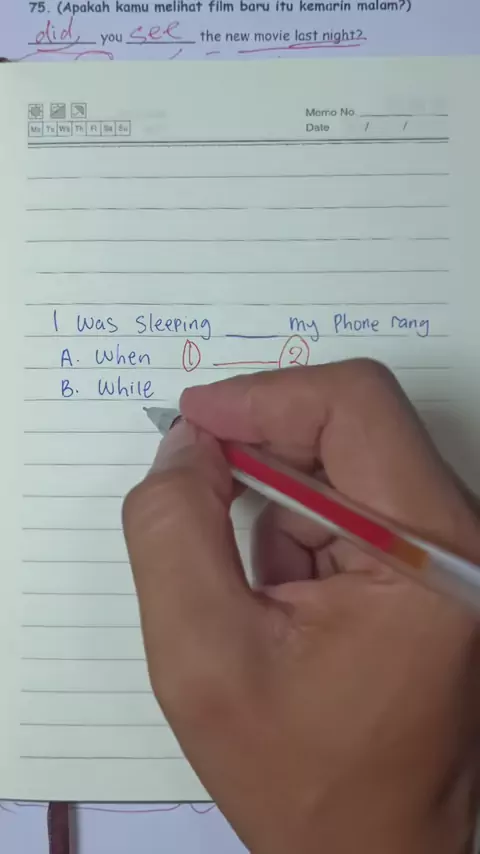 75. (Apakah kamu melihat film baru itu kemarin malam?)
did you see the new movie last night?
Memo No.
Mo Tu We Th Fr Sa Su
Date / /
I was sleeping ____ my Phone rang
A. When ① ____ ②
B. While